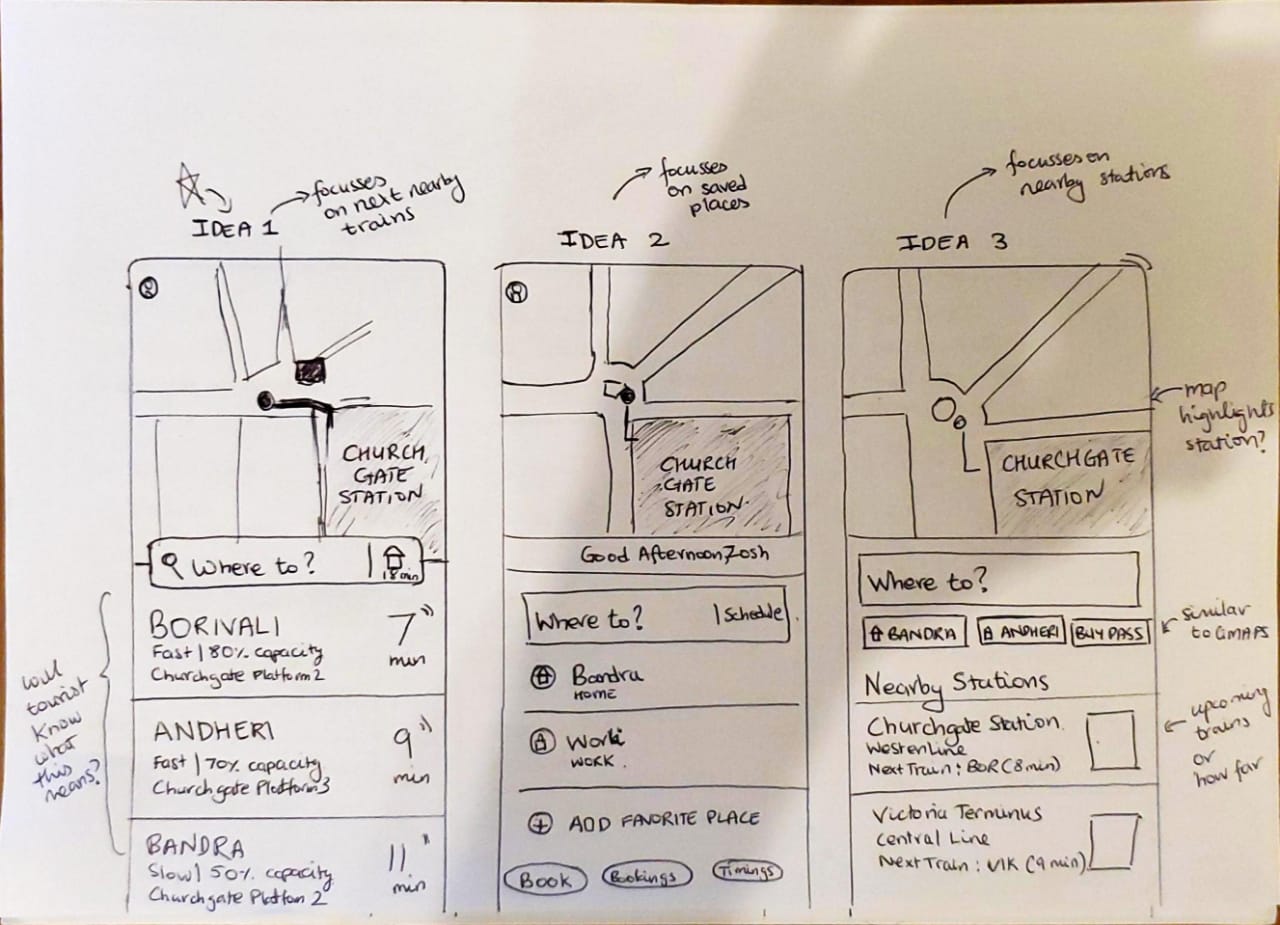 IDEA 1
focusses
on next nearby
trains
CHURCH
GATE
STATION
Where to?
18 min
BORIVALI
Fast | 80% capacity
Churchgate Platform 2
7
min
ANDHERI
Fast | 70% capacity
Churchgate Platform 3
9
min
BANDRA
Slow | 50% capacity
Churchgate Platform 2
11
min
will
tourist
know
what
this
means?
IDEA 2
focusses
on saved
places
CHURCH
GATE
STATION
Good Afternoon Zosh
Where to? | Schedule
Bandra
HOME
Work
WORK
ADD FAVORITE PLACE
Book
Bookings
Timings
IDEA 3
focusses on
nearby stations
CHURCHGATE
STATION
map
highlights
station?
Where to?
BANDRA
ANDHERI
BUY PASS
similar
to GMAPS
Nearby Stations
Churchgate Station
Western Line
Next Train: BOR (8 min)
upcoming
trains
or
how far
Victoria Terminus
Central Line
Next Train: VIK (9 min)